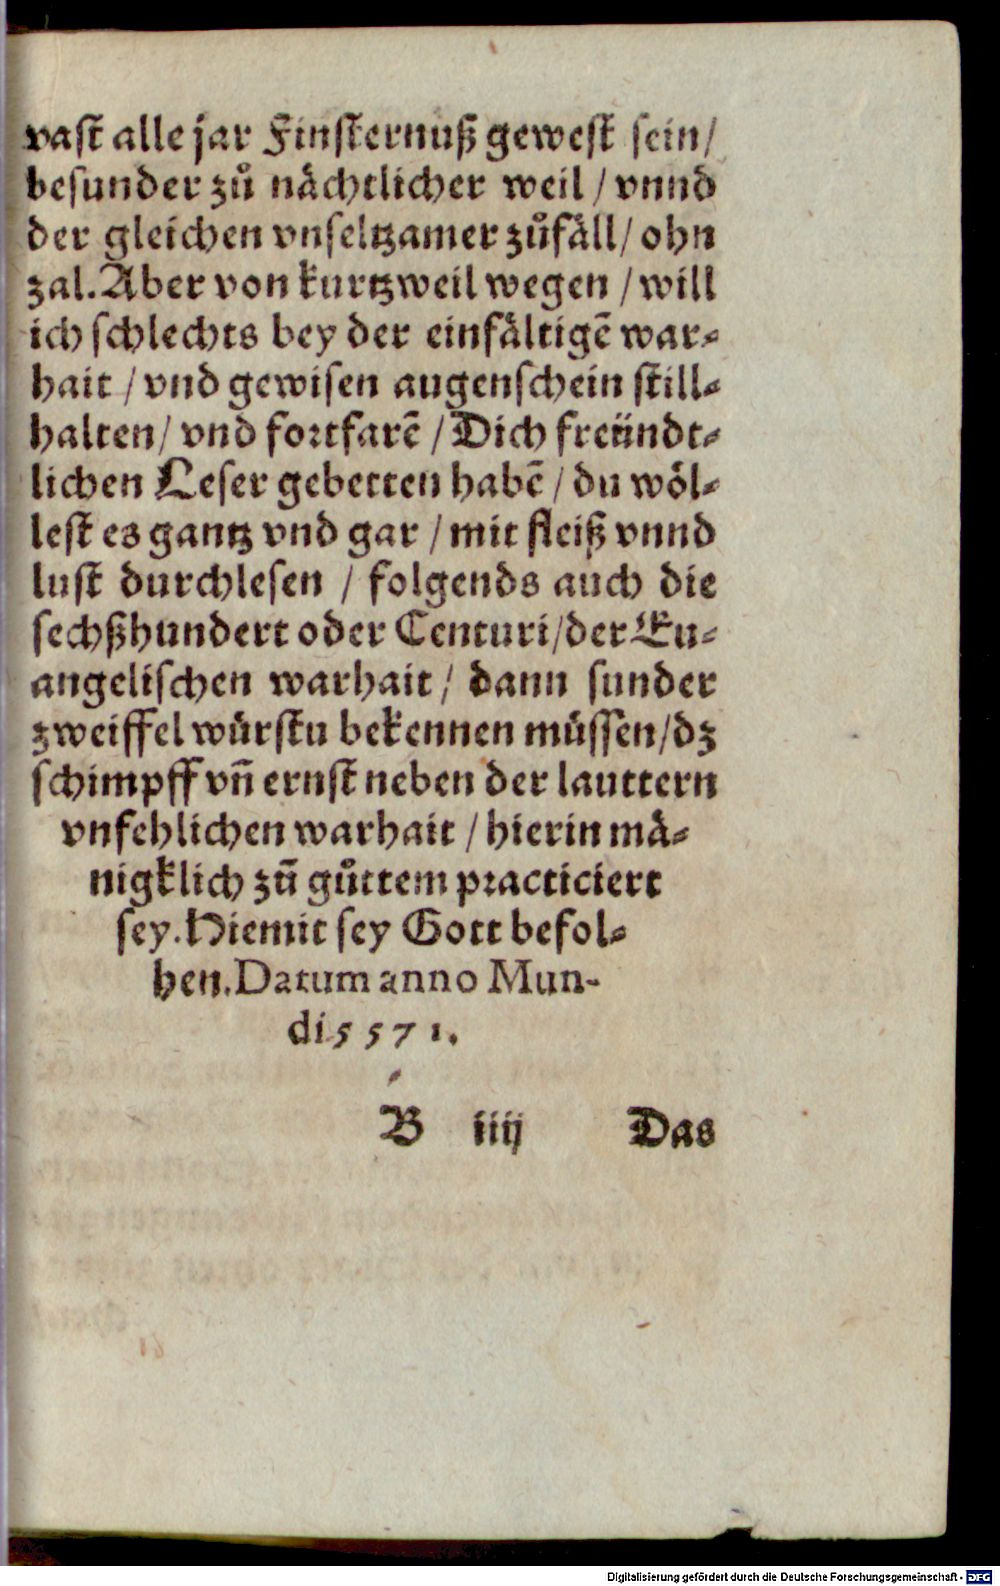 vast alle jar Finsternuß gewest sein/
besunder zů nächtlicher weil / vnnd
der gleichen vnseltzamer zůfäll/ ohn
zal. Aber von kurtzweil wegen / will
ich schlechts bey der einfältigē war⸗
hait / vnd gewisen augenschein still⸗
halten/ vnd fortfarē / Dich freündt⸗
lichen Leser gebetten habē / du wöl⸗
lest es gantz vnd gar / mit fleiß vnnd
lust durchlesen / folgends auch die
sechßhundert oder Centuri/der Eu⸗
angelischen warhait / dann sunder
zweiffel würstu bekennen müssen/dz
schimpff vn̄ ernst neben der lauttern
vnfehlichen warhait / hierin mä⸗
nigklich zū gůttem practiciert
sey. Hiemit sey Gott befol⸗
hen. Datum anno Mun-
di 5571.
B iiij Das
Digitalisierung gefördert durch die Deutsche Forschungsgemeinschaft - DFG